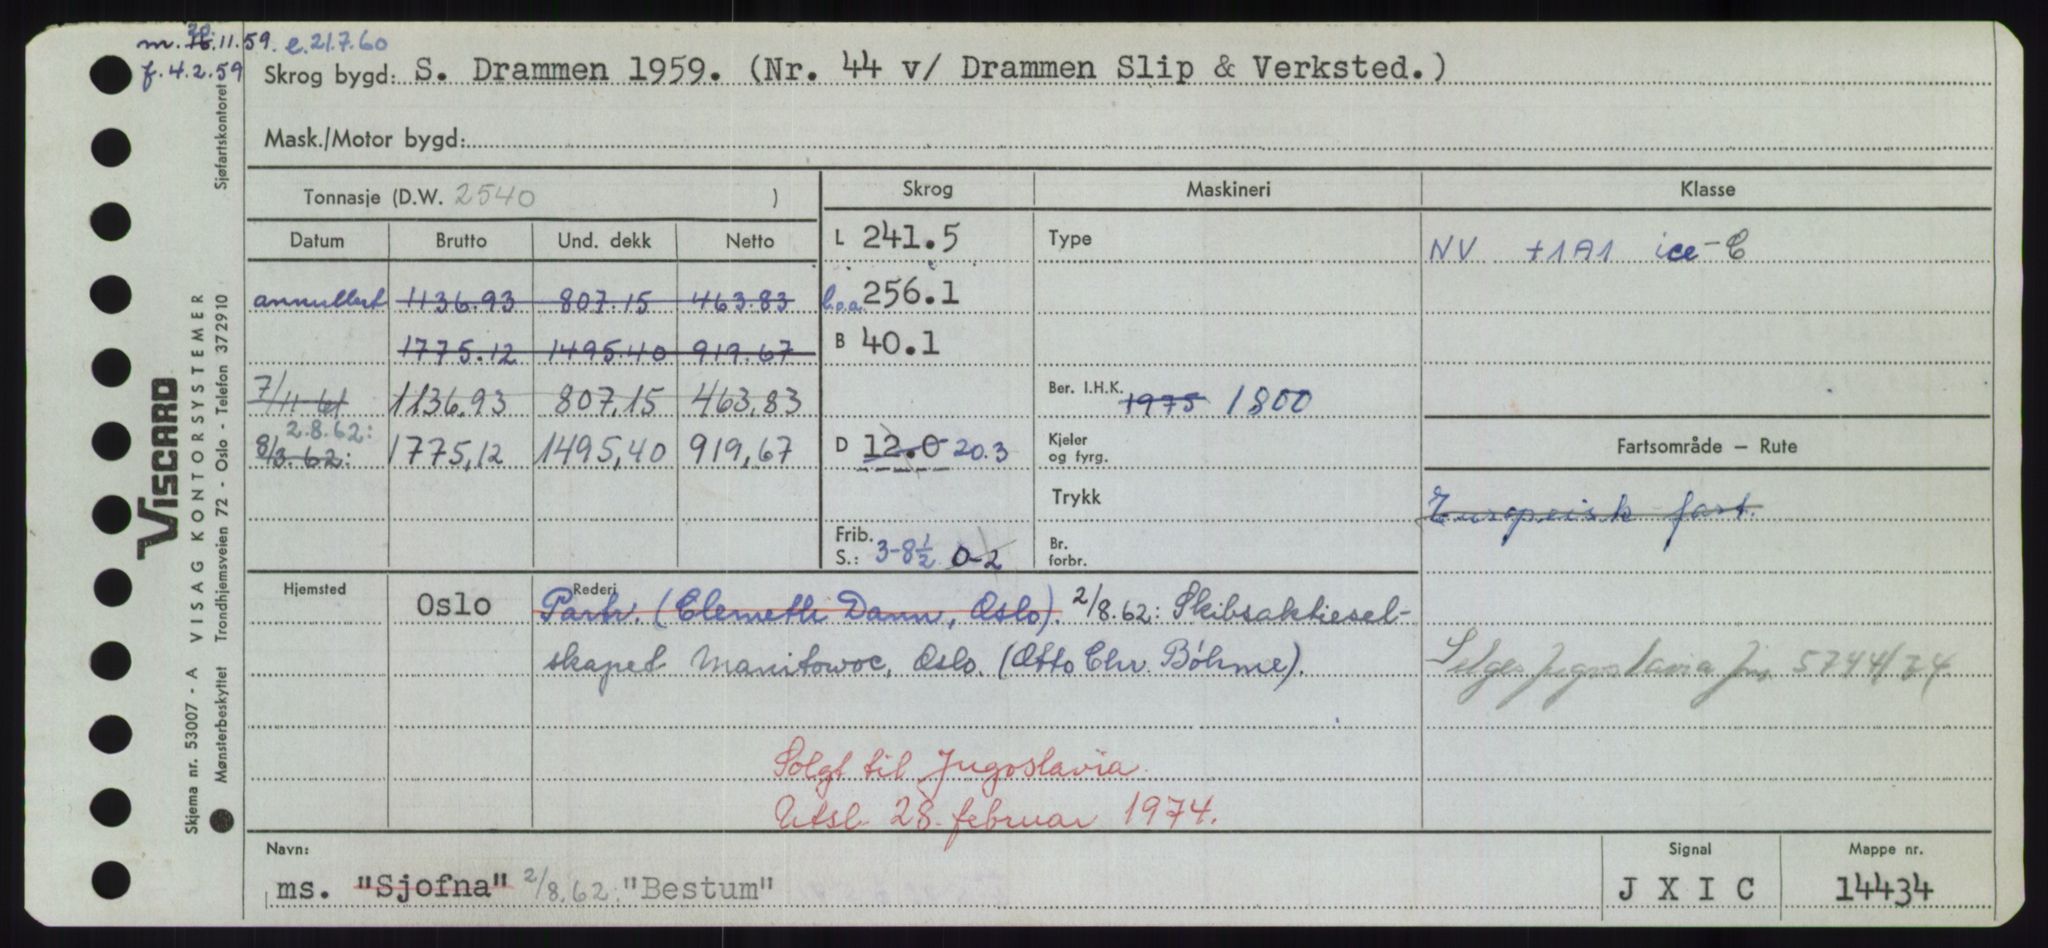 m. 16.11.59. e. 21.7.60
20.
f. 4.2.59
Skrog bygd: S. Drammen 1959. (Nr. 44 v/ Drammen Slip & Verksted.)
Mask./Motor bygd:
Tonnasje (D.W. 2540 )
Skrog Maskineri Klasse
Datum Brutto Und. dekk Netto
L 241.5 Type NV +1A1 ice-C
annullert 1136.93 807.15 463.83 l.o.a. 256.1
1775.12 1495.40 919.67 B 40.1
7/11 61 1136.93 807,15 463,83 Ber. I.H.K. 1975 1800
2.8.62:
8/3.62: 1775,12 1495,40 919,67 D 12.0 20.3 Kjeler og fyrg. Fartsområde – Rute
Trykk Europeisk fart.
Frib. S.: 3-8½ 0-2 Br. forbr.
Hjemsted Oslo Rederi
Partr. (Clemeth Dann, Oslo). 2/8.62: Skibsaktiesel-
skapet Manitowoc, Oslo. (Otto Chr. Böhme).
Selges Jugoslavia 5744/74
Solgt til Jugoslavia.
Utsl. 28. februar 1974.
Navn: Signal Mappe nr.
ms. "Sjofna" 2/8.62: "Bestum" J X I C 14434
VISCARD
Skjema nr. 53007 - A VISAG KONTORSYSTEMER
Mønsterbeskyttet Trondhjemsveien 72 - Oslo - Telefon 372910 Sjøfartskontoret